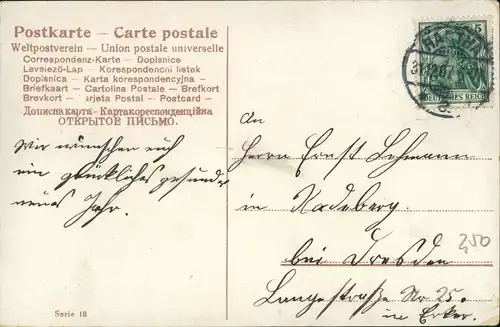 Postkarte — Carte postale
Weltpostverein — Union postale universelle
Correspondenz-Karte — Dopisnice
Levelező-Lap — Korespondencni listek
Dopisnica — Karta korespondencyjna —
Briefkaart — Cartolina Postale — Brefkort
Brevkort — arjeta Postal — Postcard —
Дописна карта - Картакореспонденційна
ОТКРЫТОЕ ПИСЬМО.
Wir wünschen euch
ein glückliches gesundes
neues Jahr.
Serie 18
5
07
DEUTSCHES REICH
An
Herrn Ernst Lehmann
in Radeberg.
bei Dresden
2,50
Langestraße Nr 25.
im Erker.